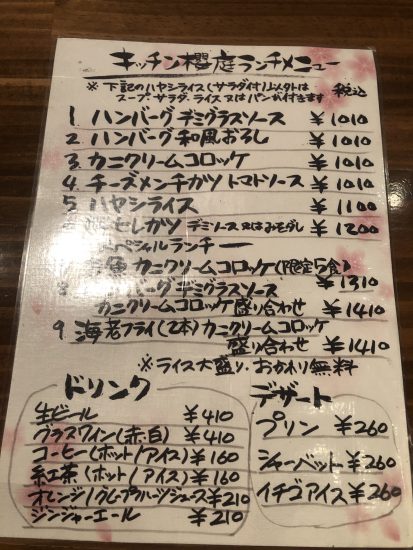 キッチン櫻庭ランチメニュー
※下記のハヤシライス(サラダ付)以外は
スープ.サラダ.ライス又はパンが付きます 税込
1. ハンバーグデミグラスソース ¥1010
2. ハンバーグ和風おろし ¥1010
3. カニクリームコロッケ ¥1010
4 チーズメンチカツトマトソース ¥1010
5 ハヤシライス ¥1100
ヒレカツ デミソース又はみそダレ ¥1200
スペシャルランチー
カニクリームコロッケ(限定5食) ¥1310
ハンバーグデミグラスソース
カニクリームコロッケ盛り合わせ ¥1410
9. 海老フライ(2本)カニクリームコロッケ
盛り合わせ ¥1410
※ライス大盛り.おかわり無料
ドリンク
生ビール ¥410
グラスワイン(赤.白) ¥410
コーヒー(ホット/アイス) ¥160
紅茶(ホット/アイス) ¥160
オレンジ/グレープフルーツジュース ¥210
ジンジャーエール ¥210
デザート
プリン ¥260
シャーベット ¥260
イチゴアイス ¥260